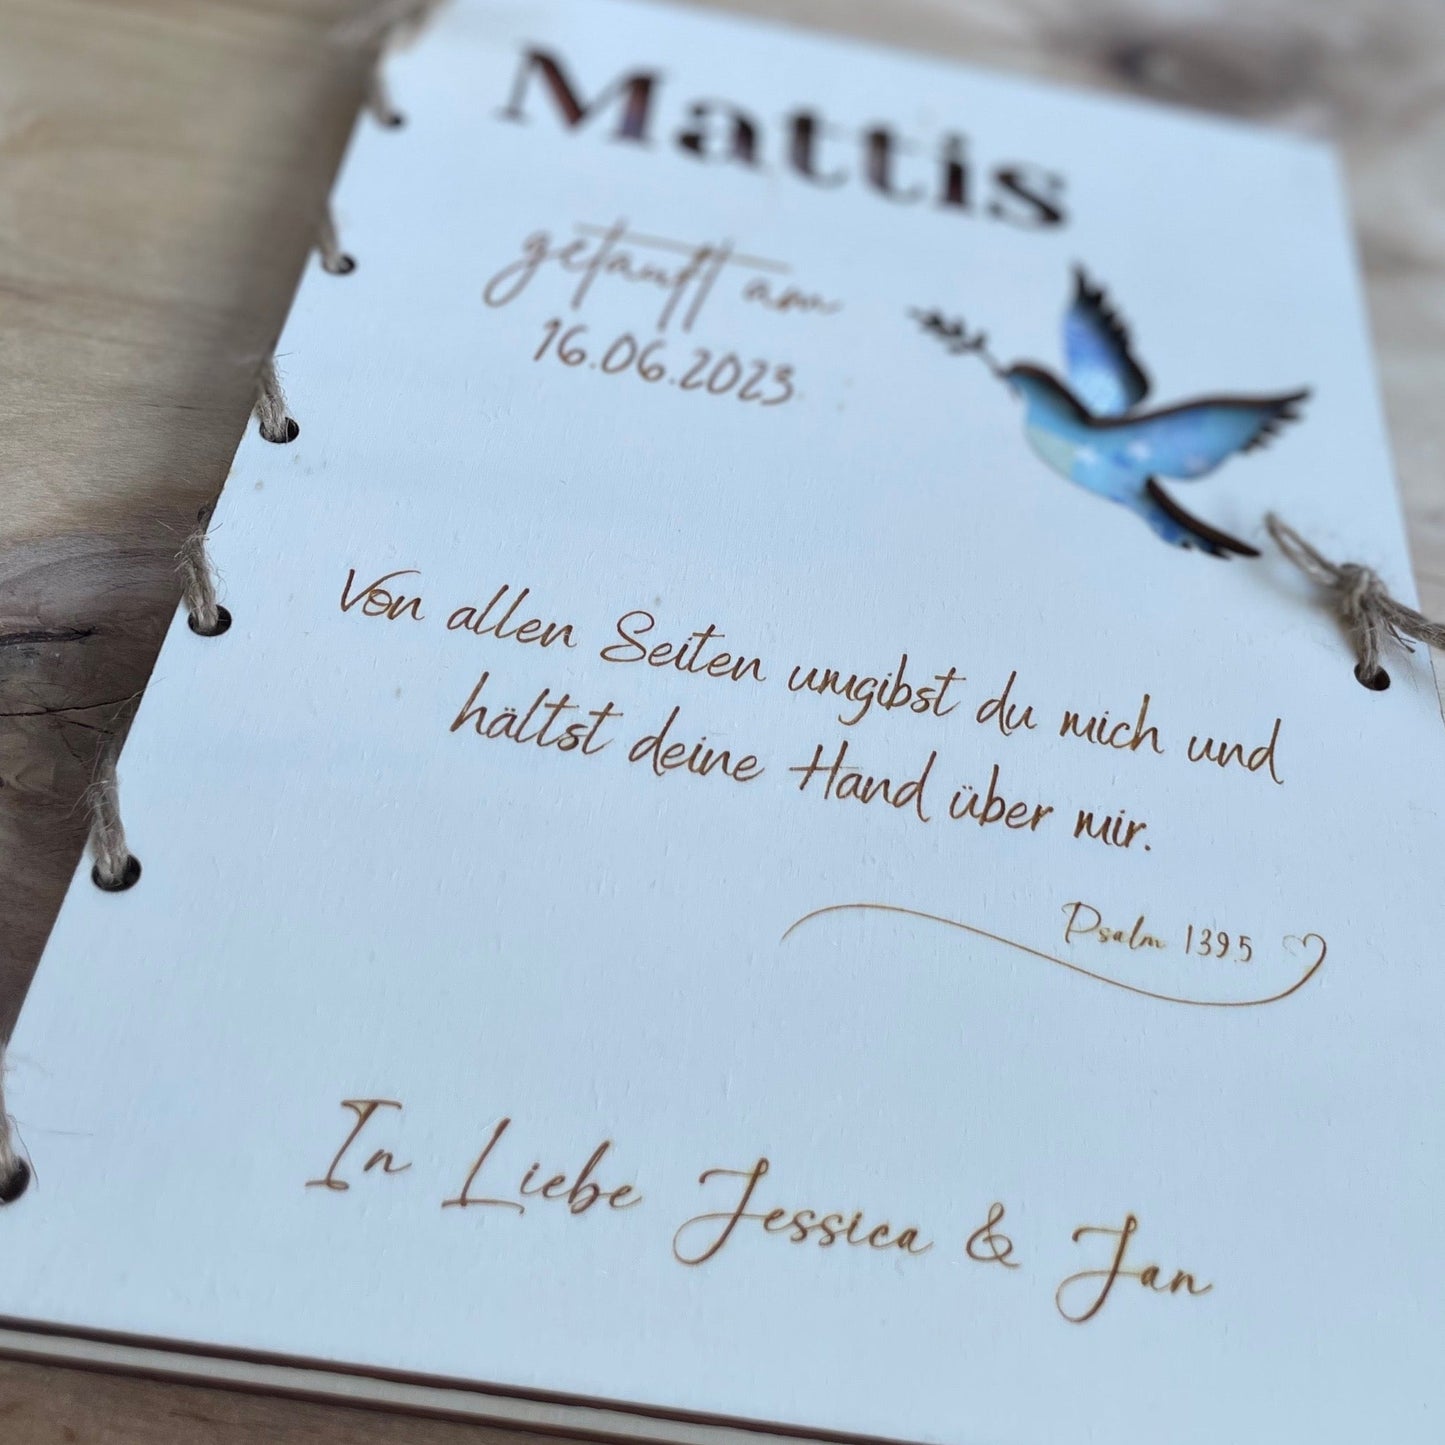 Mattis
getauft am
16.06.2023
Von allen Seiten umgibst du mich und
hältst deine Hand über mir.
Psalm 139.5
In Liebe Jessica & Jan